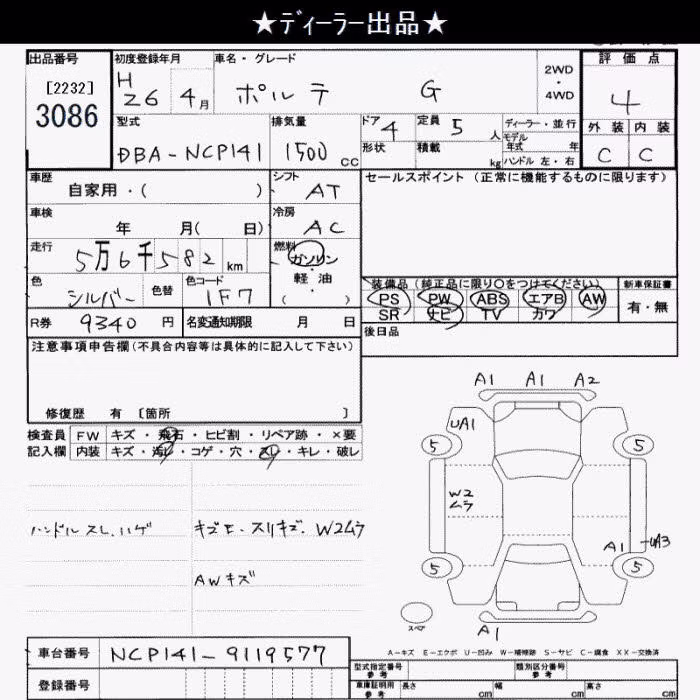 ★ディーラー出品★
出品番号 初度登録年月 車名・グレード 2WD・4WD 評価点
[2232] H 26 4月 ポルテ G 4
3086
型式 排気量 ドア 4 定員 5人 ディーラー・並行 外装 内装
DBA-NCP141 1500cc 形状 積載 kg モデル年式 年 ハンドル 左・右 C C
車歴 自家用・( ) シフト AT セールスポイント(正常に機能するものに限ります)
車検 年 月( 日) 冷房 AC
走行 5万6千582km 燃料 ガソリン・軽油 ( )
色 シルバー 色替 色コード 1F7 装備品(純正品に限り○をつけてください) 新車保証書
PS PW ABS エアB AW 有・無
SR ナビ TV カワ
R券 9340円 名変通知期限 月 日 後日品
注意事項申告欄(不具合内容等は具体的に記入して下さい)
修復歴 有 [箇所 ]
検査員 FW キズ・飛石・ヒビ割・リペア跡・×要
記入欄 内装 キズ・汚れ・コゲ・穴・スレ・キレ・破レ
ハンドルスレ、ハゲ キズE・スリキズ・W2ムラ
AWキズ
A1 A1 A2
UA1
5 5
W2
ムラ
A1 UA3
5 5
スペア A1
A-キズ E-エクボ U-凹み W-補修跡 S-サビ C-腐食 XX-交換済
車台番号 NCP141-9119577 型式指定番号 参考 類別区分番号 参考
登録番号 車庫証明用 参考 長さ cm 幅 cm 高さ cm